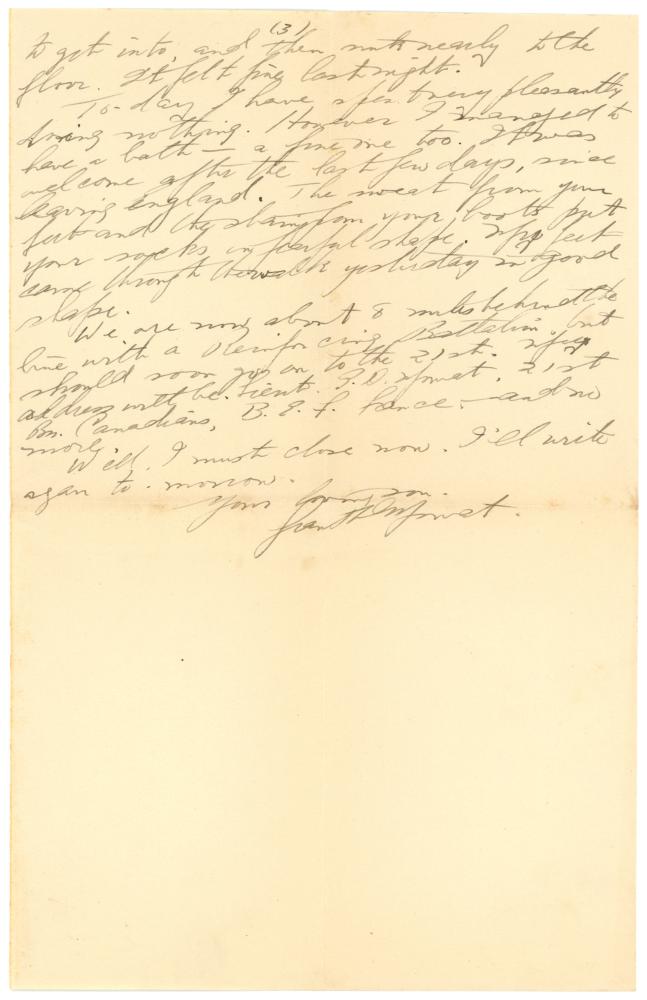 (3)
to get into, and then sinks nearly to the
floor. It felt fine last night.
To-day I have spent very pleasantly
doing nothing. However I managed to
have a bath - a fine one too. It was
welcome after the last few days, since
leaving england. The sweat from your
feet and the stain from your boots put
your socks in fearful shape. My feet
came through the walk yesterday in good
shape.
We are now about 8 miles behind the
line with a Reinforcing Battalion, but
should soon go on to the 21st. My
address will be Lieut. G.D. Mowat, 21st
Bn. Canadians, B.E.F. France, - and no
more.
Well, I must close now. I'll write
again to-morrow.
Your loving son.
Mowat.